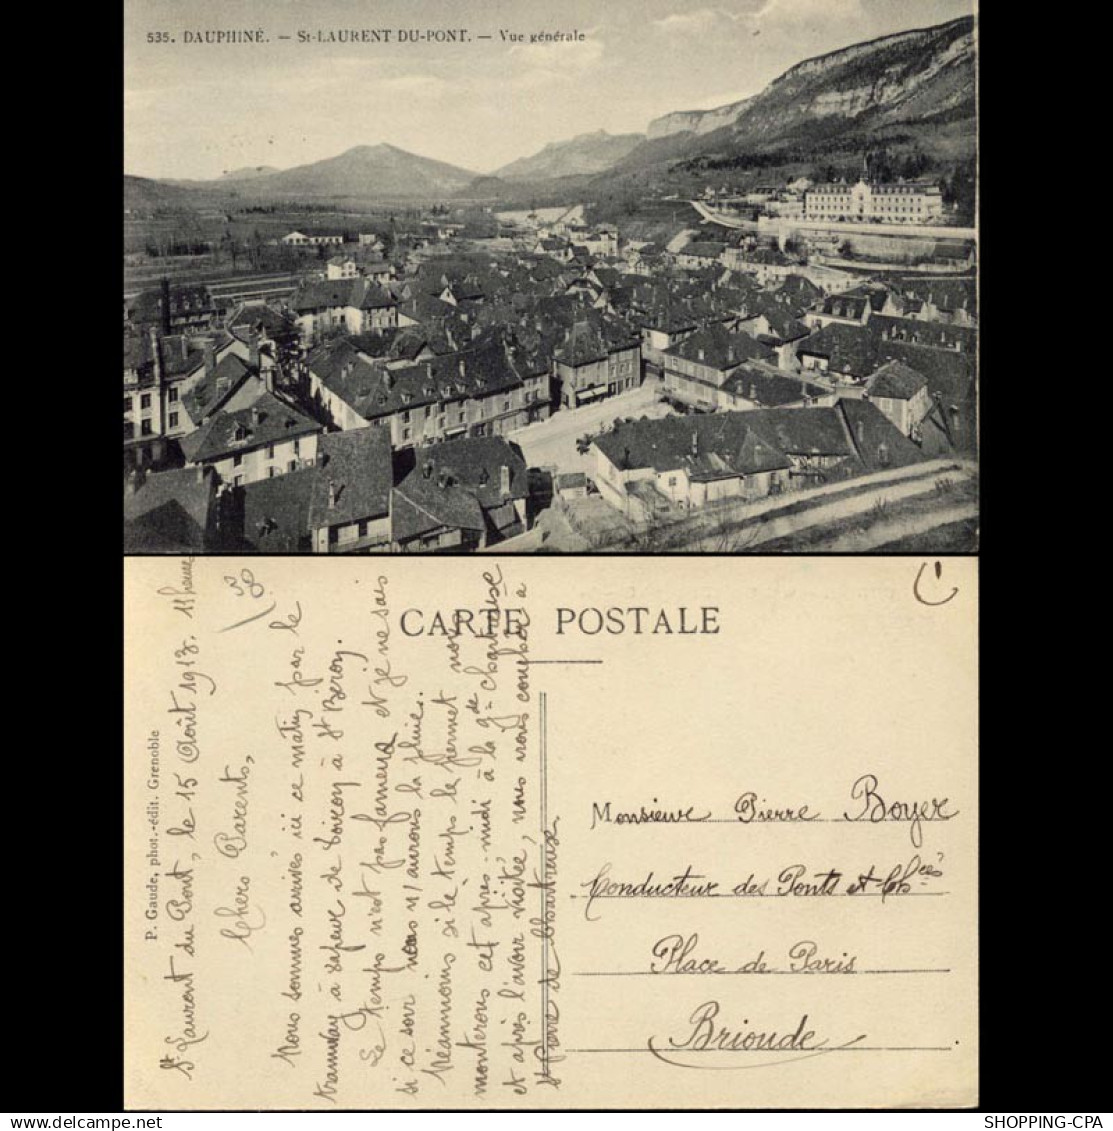 535. DAUPHINÉ. — St-LAURENT DU-PONT. — Vue générale
CARTE POSTALE
P. Gaude, phot.-édit. Grenoble
St Laurent du Pont, le 15 Août 1913. 11 heures
Chers Parents,
Nous sommes arrivés ici ce matin par le
tramway à vapeur de Voiron à St Béron.
Le temps n'est pas fameux et je ne sais
si ce soir nous n'aurons la pluie.
Néanmoins si le temps le permet nous
monterons cet après-midi à la Gde Chartreuse
et après l'avoir visitée, nous irons coucher à
St Pierre de Chartreuse.
Monsieur Pierre Boyer
Conducteur des Ponts et Chées
Place de Paris
Brioude
SHOPPING-CPA